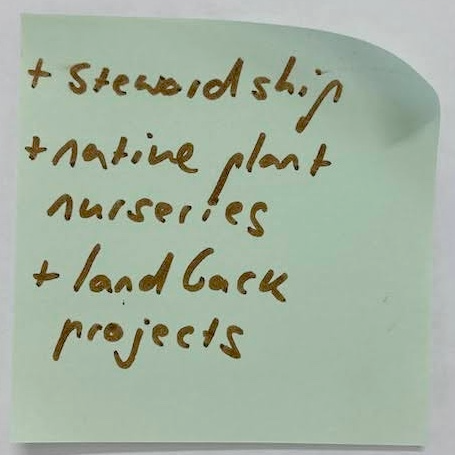 + stewardship
+ native plant
nurseries
+ land back
projects